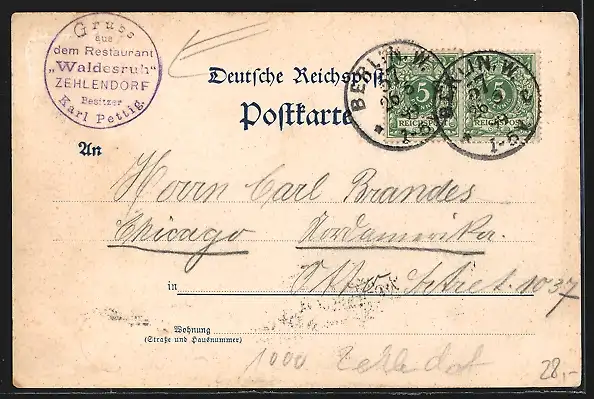 Gruss
aus
dem Restaurant
„Waldesruh“
ZEHLENDORF
Besitzer
Karl Pettig.
Deutsche Reichspost
Postkarte
BERLIN. W.
57
1-6
5
REICHSPOST
BERLIN. W.
57
1-6
5
REICHSPOST
An
Herrn Carl Brandes
Chicago Nordamerika.
Otto Street. 1037
in
Wohnung
(Straße und Hausnummer)
1000 Zehlendof
28,-